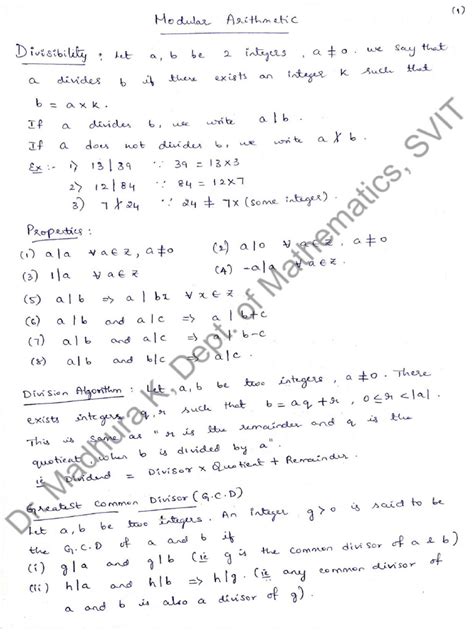 (1)
Modular Arithmetic
Divisibility : Let a, b be 2 integers, a ≠ 0. we say that
a divides b if there exists an integer k such that
b = a × k.
If a divides b, we write a | b.
If a does not divides b, we write a ∤ b.
Ex :- 1) 13 | 39 ∵ 39 = 13×3
2) 12 | 84 ∵ 84 = 12×7
3) 7 ∤ 24 ∵ 24 ≠ 7× (some integer).
Properties :
(1) a|a ∀ a∈z, a≠0 (2) a|0 ∀ a∈z, a≠0
(3) 1|a ∀ a∈z (4) -a|a ∀ a∈z.
(5) a|b ⇒ a | bx ∀ x∈z
(6) a|b and a|c ⇒ a | b+c
(7) a|b and a|c ⇒ a | b-c
(8) a|b and b|c ⇒ a|c.
Division Algorithm : Let a, b be two integers, a ≠ 0. There
exists integers q, r such that b = aq + r, 0 ≤ r < |a|.
This is same as " r is the remainder and q is the
quotient, when b is divided by a".
ie Dividend = Divisor × Quotient + Remainder.
Greatest Common Divisor (G.C.D)
Let a, b be two integers. An integer g > 0 is said to be
the G.C.D of a and b if
(i) g|a and g|b (ie g is the common divisor of a & b)
(ii) h|a and h|b ⇒ h|g. (ie any common divisor of
a and b is also a divisor of g).
Dr. Madhura K, Dept. of Mathematics, SVIT